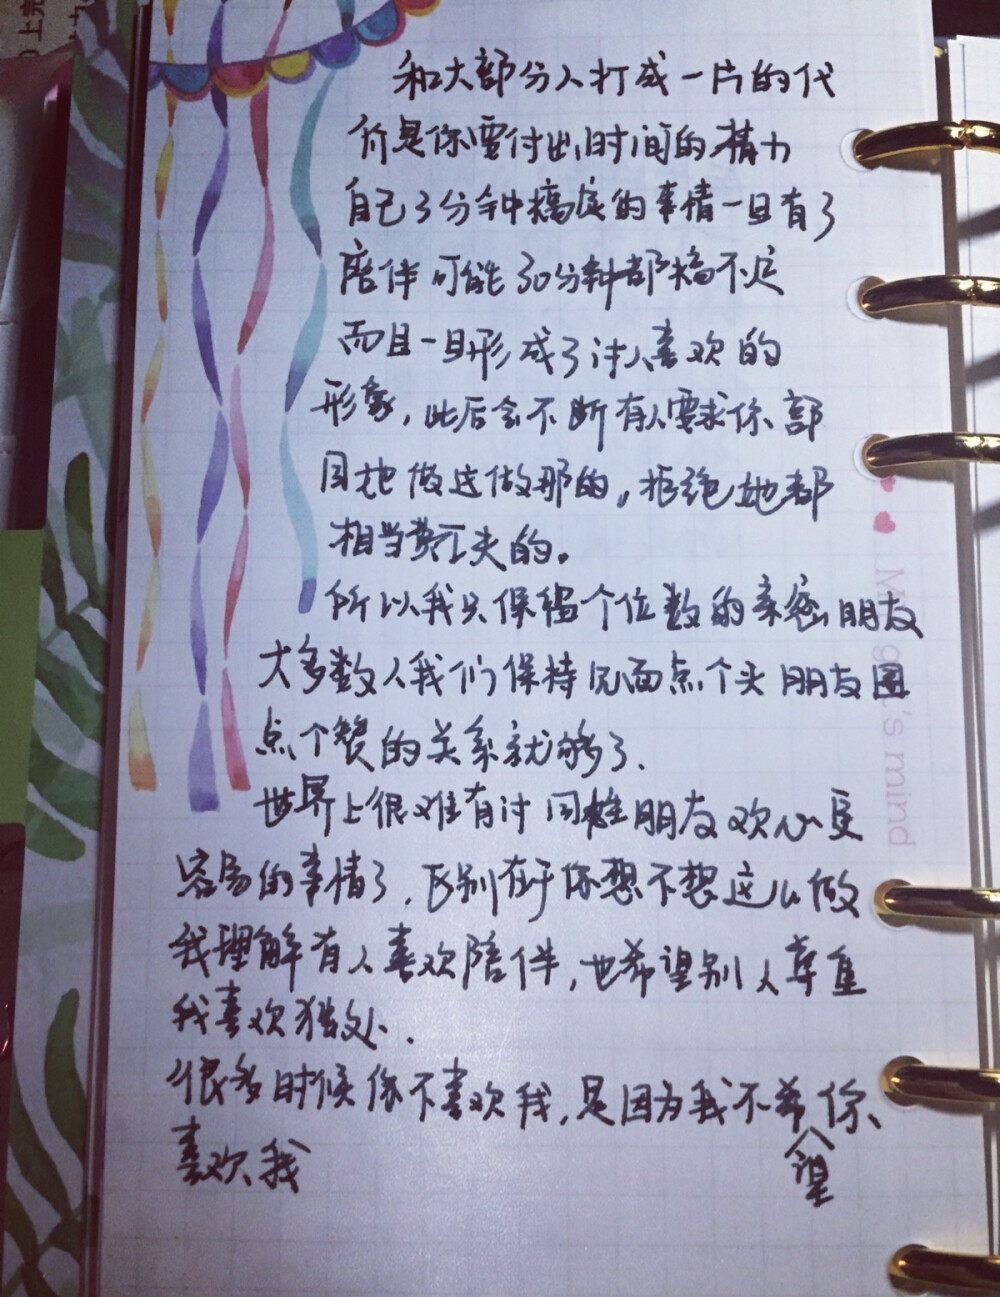 和大部分人打成一片的代
价是你需付出时间的精力
自己3分钟搞定的事情一旦有了
陪伴可能30分钟都搞不定
而且一旦形成了讨人喜欢的
形象，此后会不断有人要求你
因地做这做那的，拒绝她都
相当费工夫的。
所以我只保留个位数的亲密朋友
大多数人我们保持见面点个头朋友圈
点个赞的关系就够了.
世界上很难有讨同性朋友欢心更
容易的事情了，区别在于你想不想这么做
我理解有人喜欢陪伴，也希望别人尊重
我喜欢独处.
很多时候你不喜欢我，是因为我不希望你
喜欢我
's mind
上